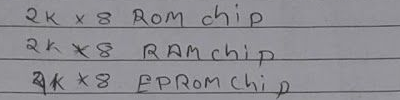 2K x 8 ROM chip
2K * 8 RAM chip
4K * 8 EPROM chip